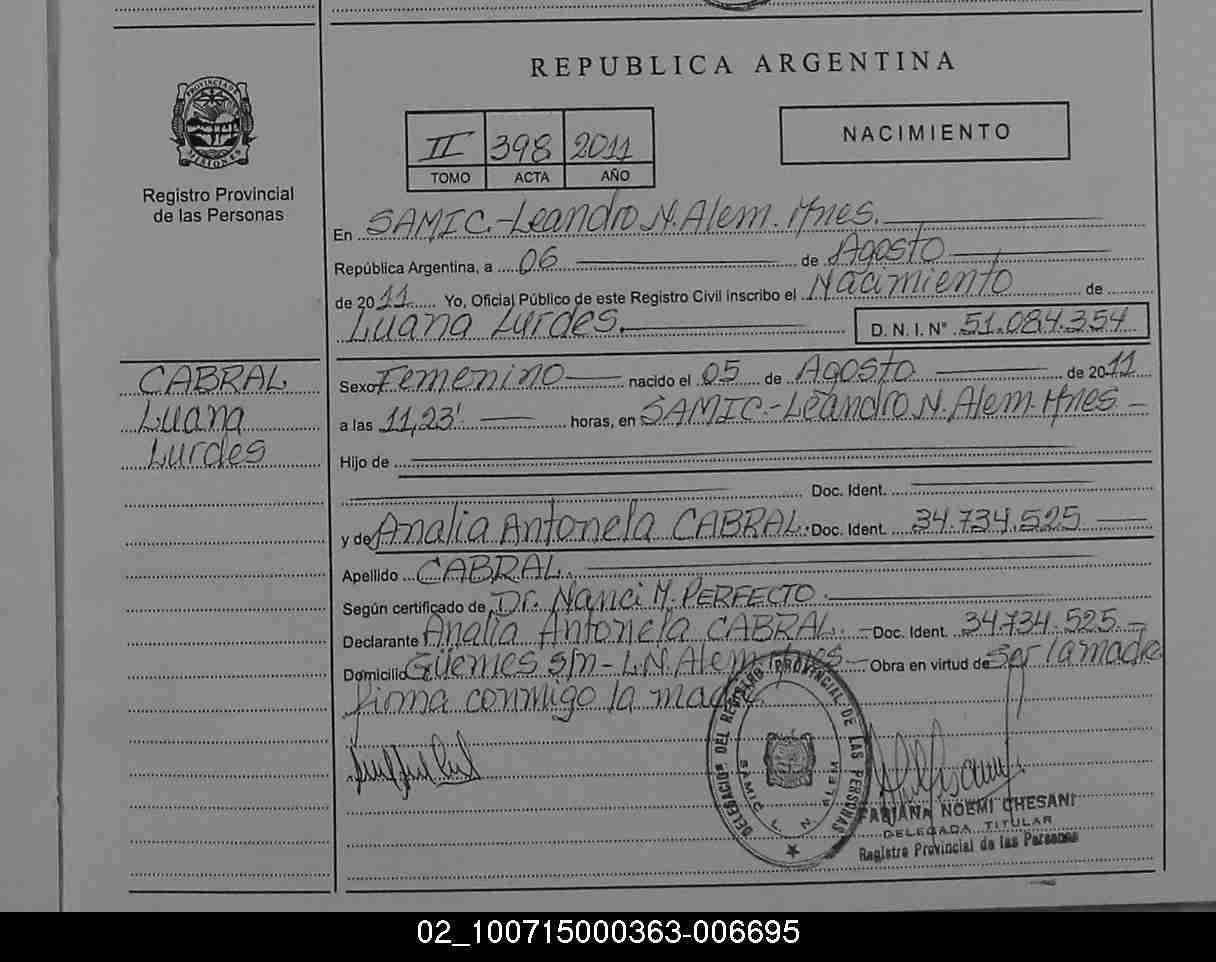 PROVINCIA DE
MISIONES
Registro Provincial
de las Personas
REPUBLICA ARGENTINA
II 398 2011
TOMO ACTA AÑO
NACIMIENTO
En SAMIC.-Leandro N. Alem. Mnes.
República Argentina, a 06 de Agosto
de 2011 Yo, Oficial Público de este Registro Civil inscribo el Nacimiento de
Luana Lurdes. D. N. I. N° 51.084.354
CABRAL
Luana
Lurdes
Sexo Femenino nacido el 05 de Agosto de 2011
a las 11,23' horas, en SAMIC.-Leandro N. Alem. Mnes
Hijo de
Doc. Ident.
y de Analia Antonela CABRAL. Doc. Ident. 34.734.525
Apellido CABRAL.
Según certificado de Dr. Nanci M. PERFECTO.
Declarante Analia Antonela CABRAL. Doc. Ident. 34.734.525
Domicilio Güemes s/n - L.N. Alem Mnes Obra en virtud de Ser la madre
firma conmigo la madre.
DELEGACION DEL REGISTRO PROVINCIAL DE LAS PERSONAS
SAMIC L. N. ALEM
FABIANA NOEMI CHESANI
DELEGADA TITULAR
Registro Provincial de las Personas
02_100715000363-006695